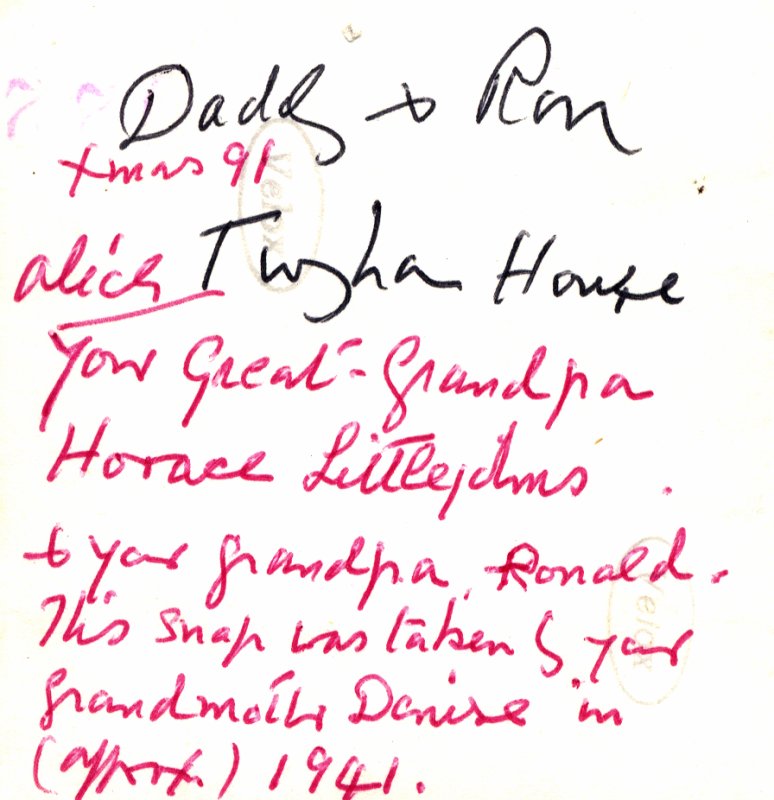 Daddy & Ron
Xmas 91
House
Your Great-Grandpa
Horace Littlejohns.
& your grandpa, Ronald.
This snap was taken by your
grandmother Denise in
(approx.) 1941.
Velox
Velox